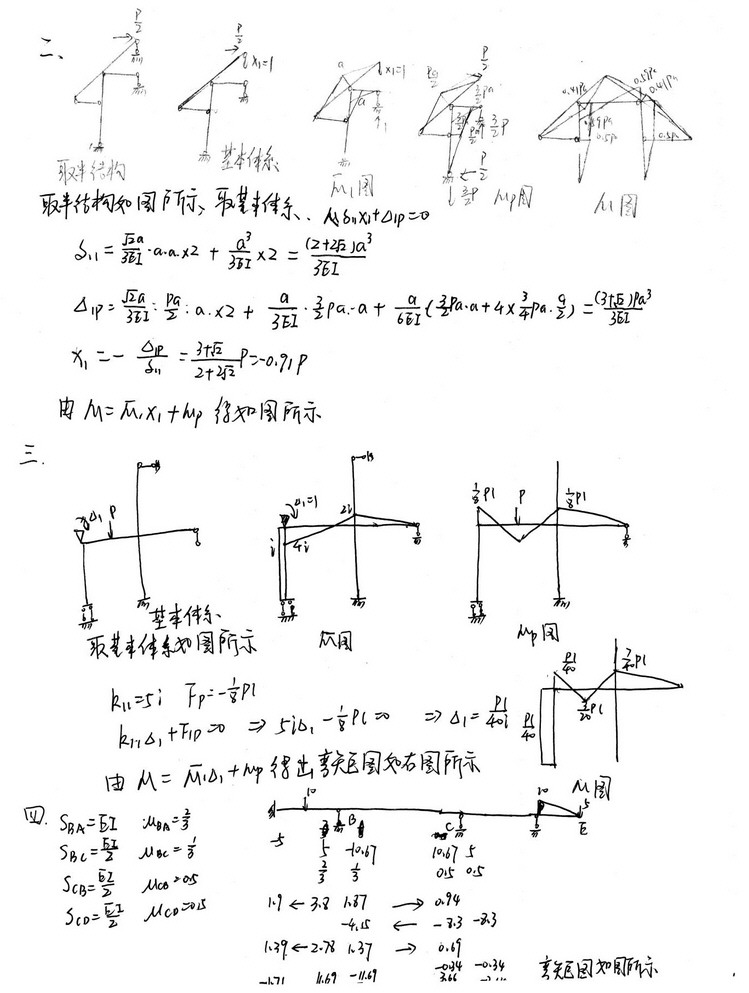 二、
P/2 P/2 x₁=1 a x₁=1 a Pa/2 P/2 3/2Pa 3/2P P/2 3/2P
0.41Pa 0.41Pa 0.5Pa
取半结构 基本体系 M̄₁图 Mp图 M图
取半结构如图所示、取基本体系、δ₁₁x₁+Δ₁p=0
δ₁₁=√2a/3EI·a·a×2+a³/3EI×2=(2+2√2)a³/3EI
Δ₁p=√2a/3EI·Pa/2·a×2+a/3EI·3/2Pa·a+a/6EI(3/2Pa·a+4×3/4Pa·a/2)=(3+√2)Pa³/3EI
x₁=-Δ₁p/δ₁₁=3+√2/2+2√2P=-0.91P
由M=M̄₁x₁+Mp得如图所示
三.
Δ₁ P Δ₁=1 2i 4i i 1/8Pl P 1/8Pl
基本体系
取基本体系如图所示 M̄图 Mp图
Pl/40 7/40Pl 3/20Pl Pl/40
k₁₁=5i Fp=-1/8Pl
k₁₁Δ₁+F₁p=0 ⇒ 5iΔ₁-1/8Pl=0 ⇒ Δ₁=Pl/40i
由M=M̄₁Δ₁+Mp得出弯矩图如右图所示
M图
四.
S_BA=EI μ_BA=2/3
S_BC=EI/2 μ_BC=1/3
S_CB=EI/2 μ_CB=0.5
S_CD=EI/2 μ_CD=0.5
10 B C 10 5 E
-5 5 -10.67 10.67 5
2/3 1/3 0.5 0.5
1.9 ← 3.8 1.87 → 0.94
-4.15 ← -8.3 -8.3
1.39 ← 2.78 1.37 → 0.69
-0.34 -0.34
-1.71 11.69 -11.69 3.66
弯矩图如图所示